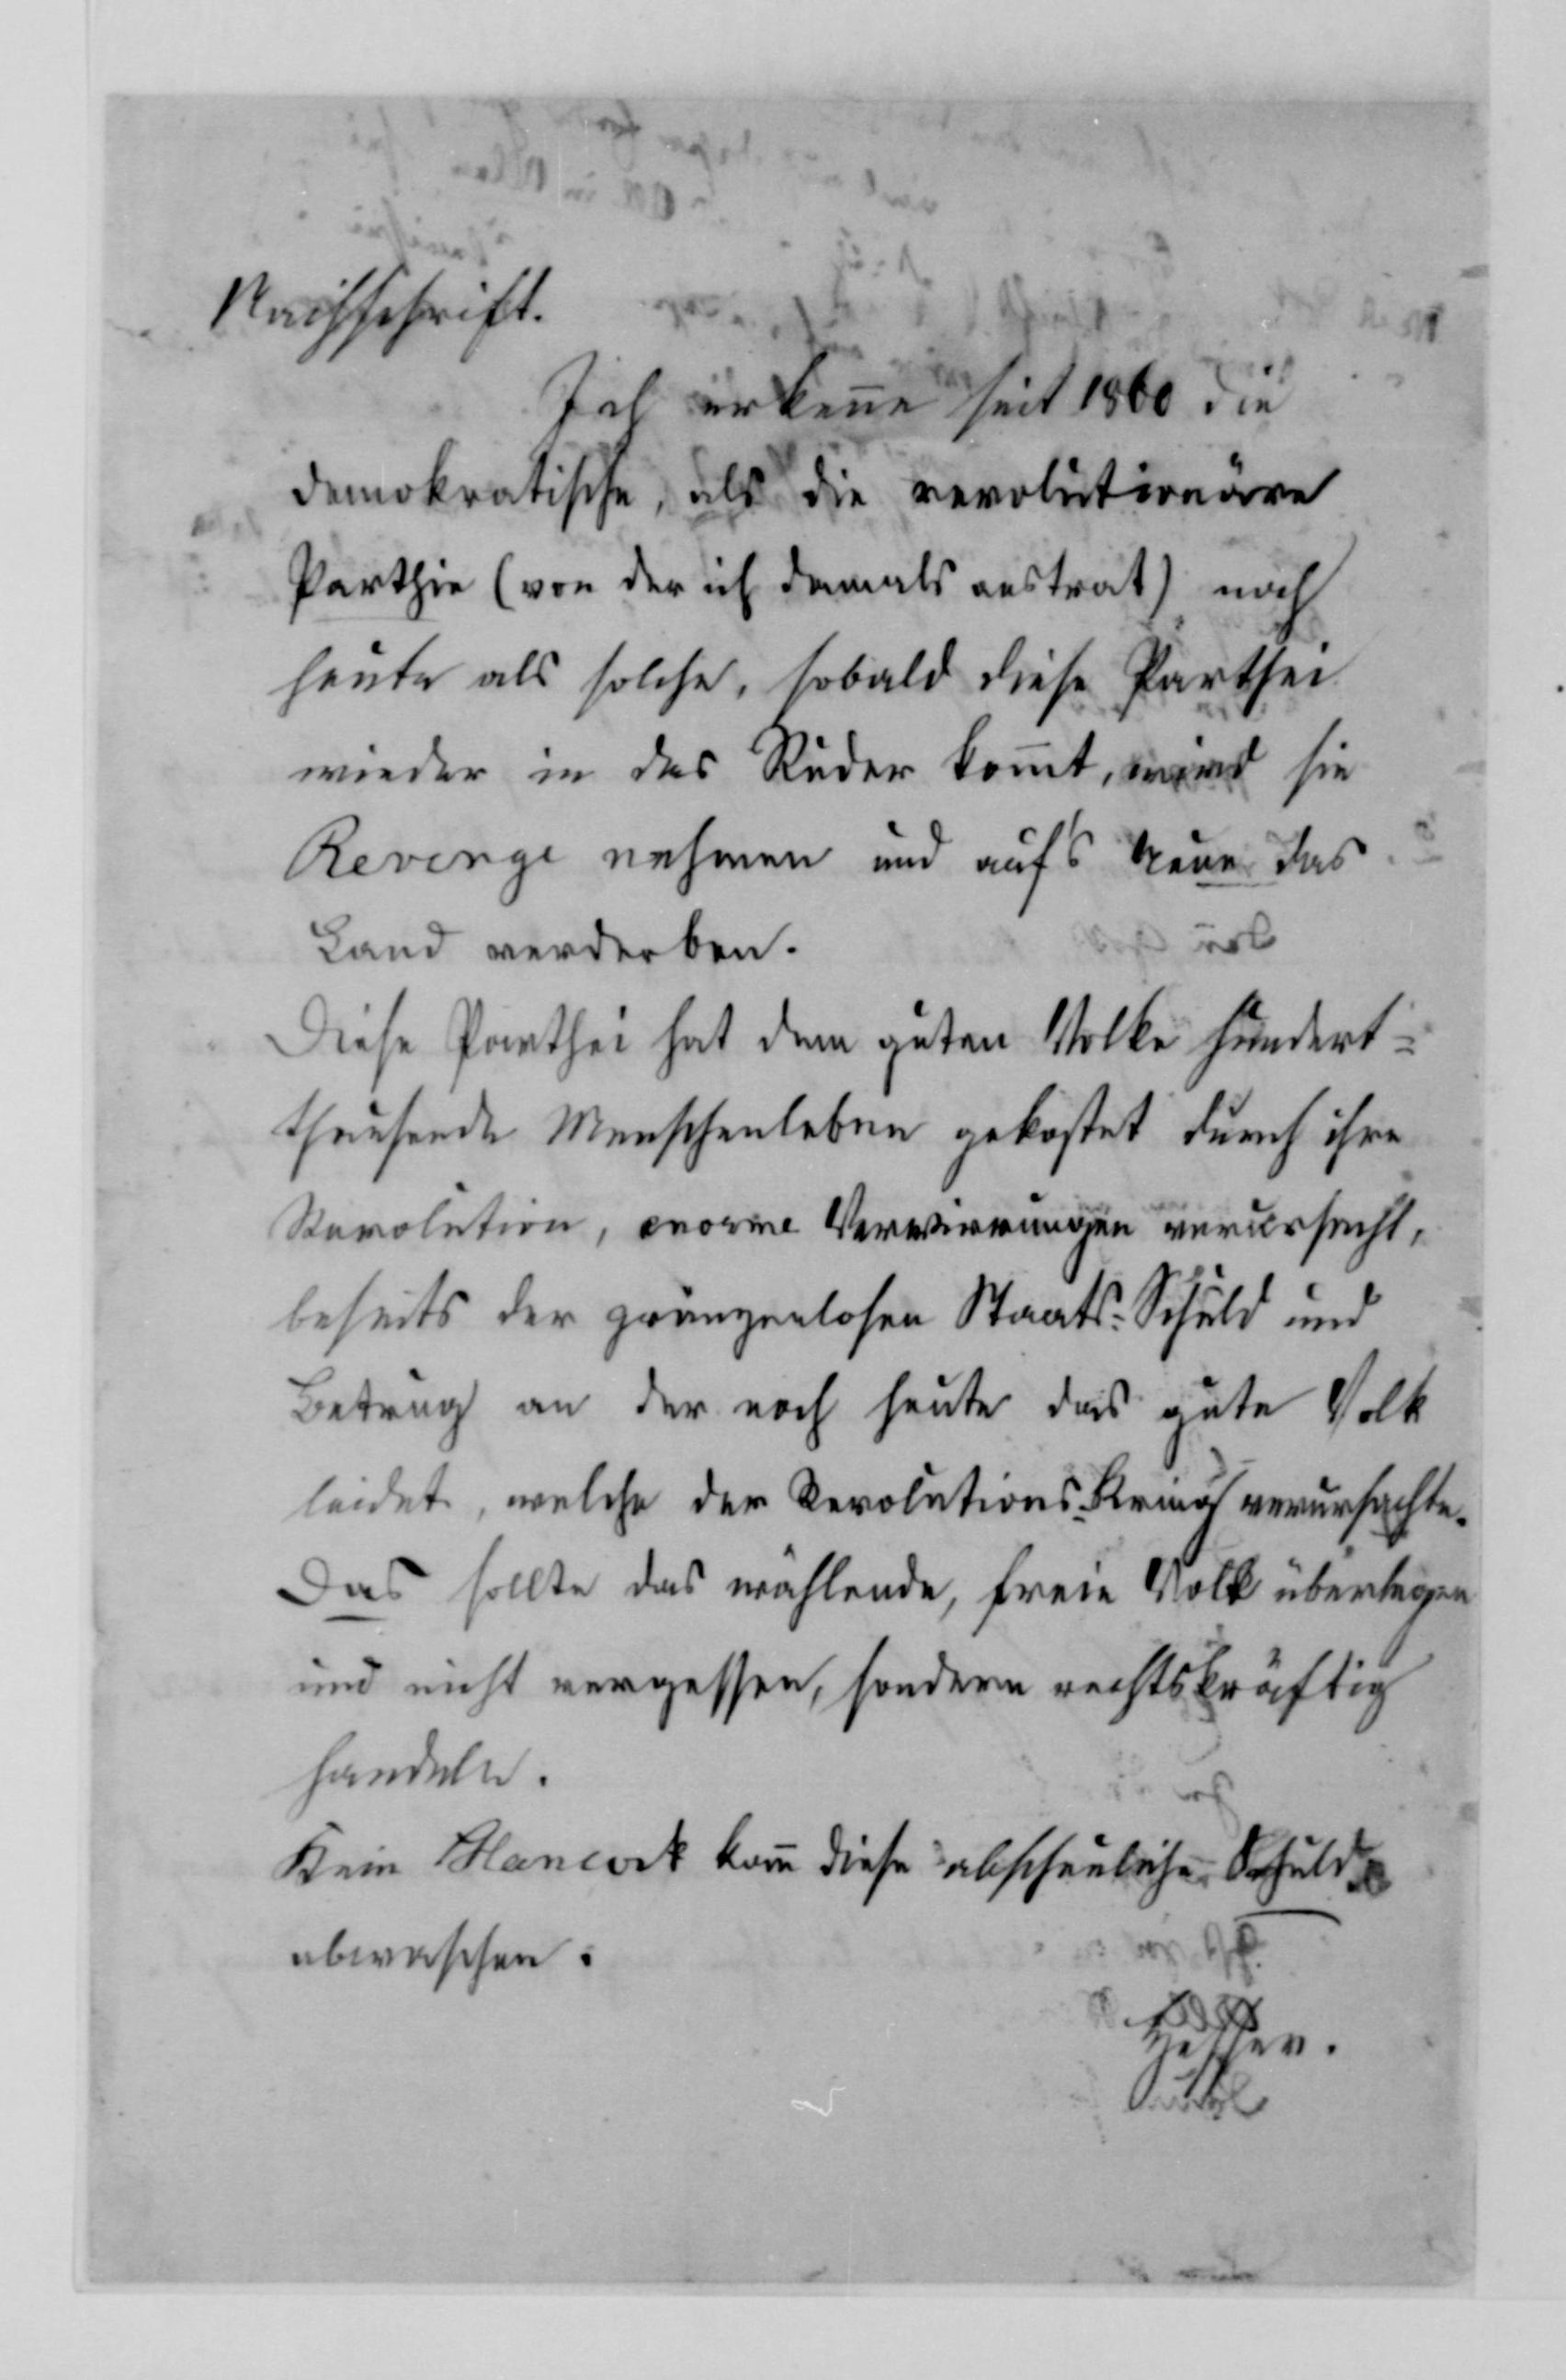 Nachschrift.
Ich erkenne seit 1860 die
demokratische, als die revolutionäre
Parthie (von der ich damals austrat) noch
heute als solche, sobald diese Parthei
wieder in das Ruder kom̄t, wird sie
Revenge nehmen und auf's Neue das
Land verderben.
Diese Parthei hat dem guten Volke hundert=
thausende Menschenleben gekostet durch ihre
Revolution, enorme Verwirrungen verursacht,
beseits der gränzenlosen Staats=Schuld und
Betrug an der noch heute das gute Volk
leidet, welche der Revolutions-Krieg verursachte.
Das sollte das wählende, freie Volk überlegen
und nicht vergessen, sondern rechtskräftig
handeln.
Kein Hancock kan̄ diese abscheuliche Schuld
abwaschen.